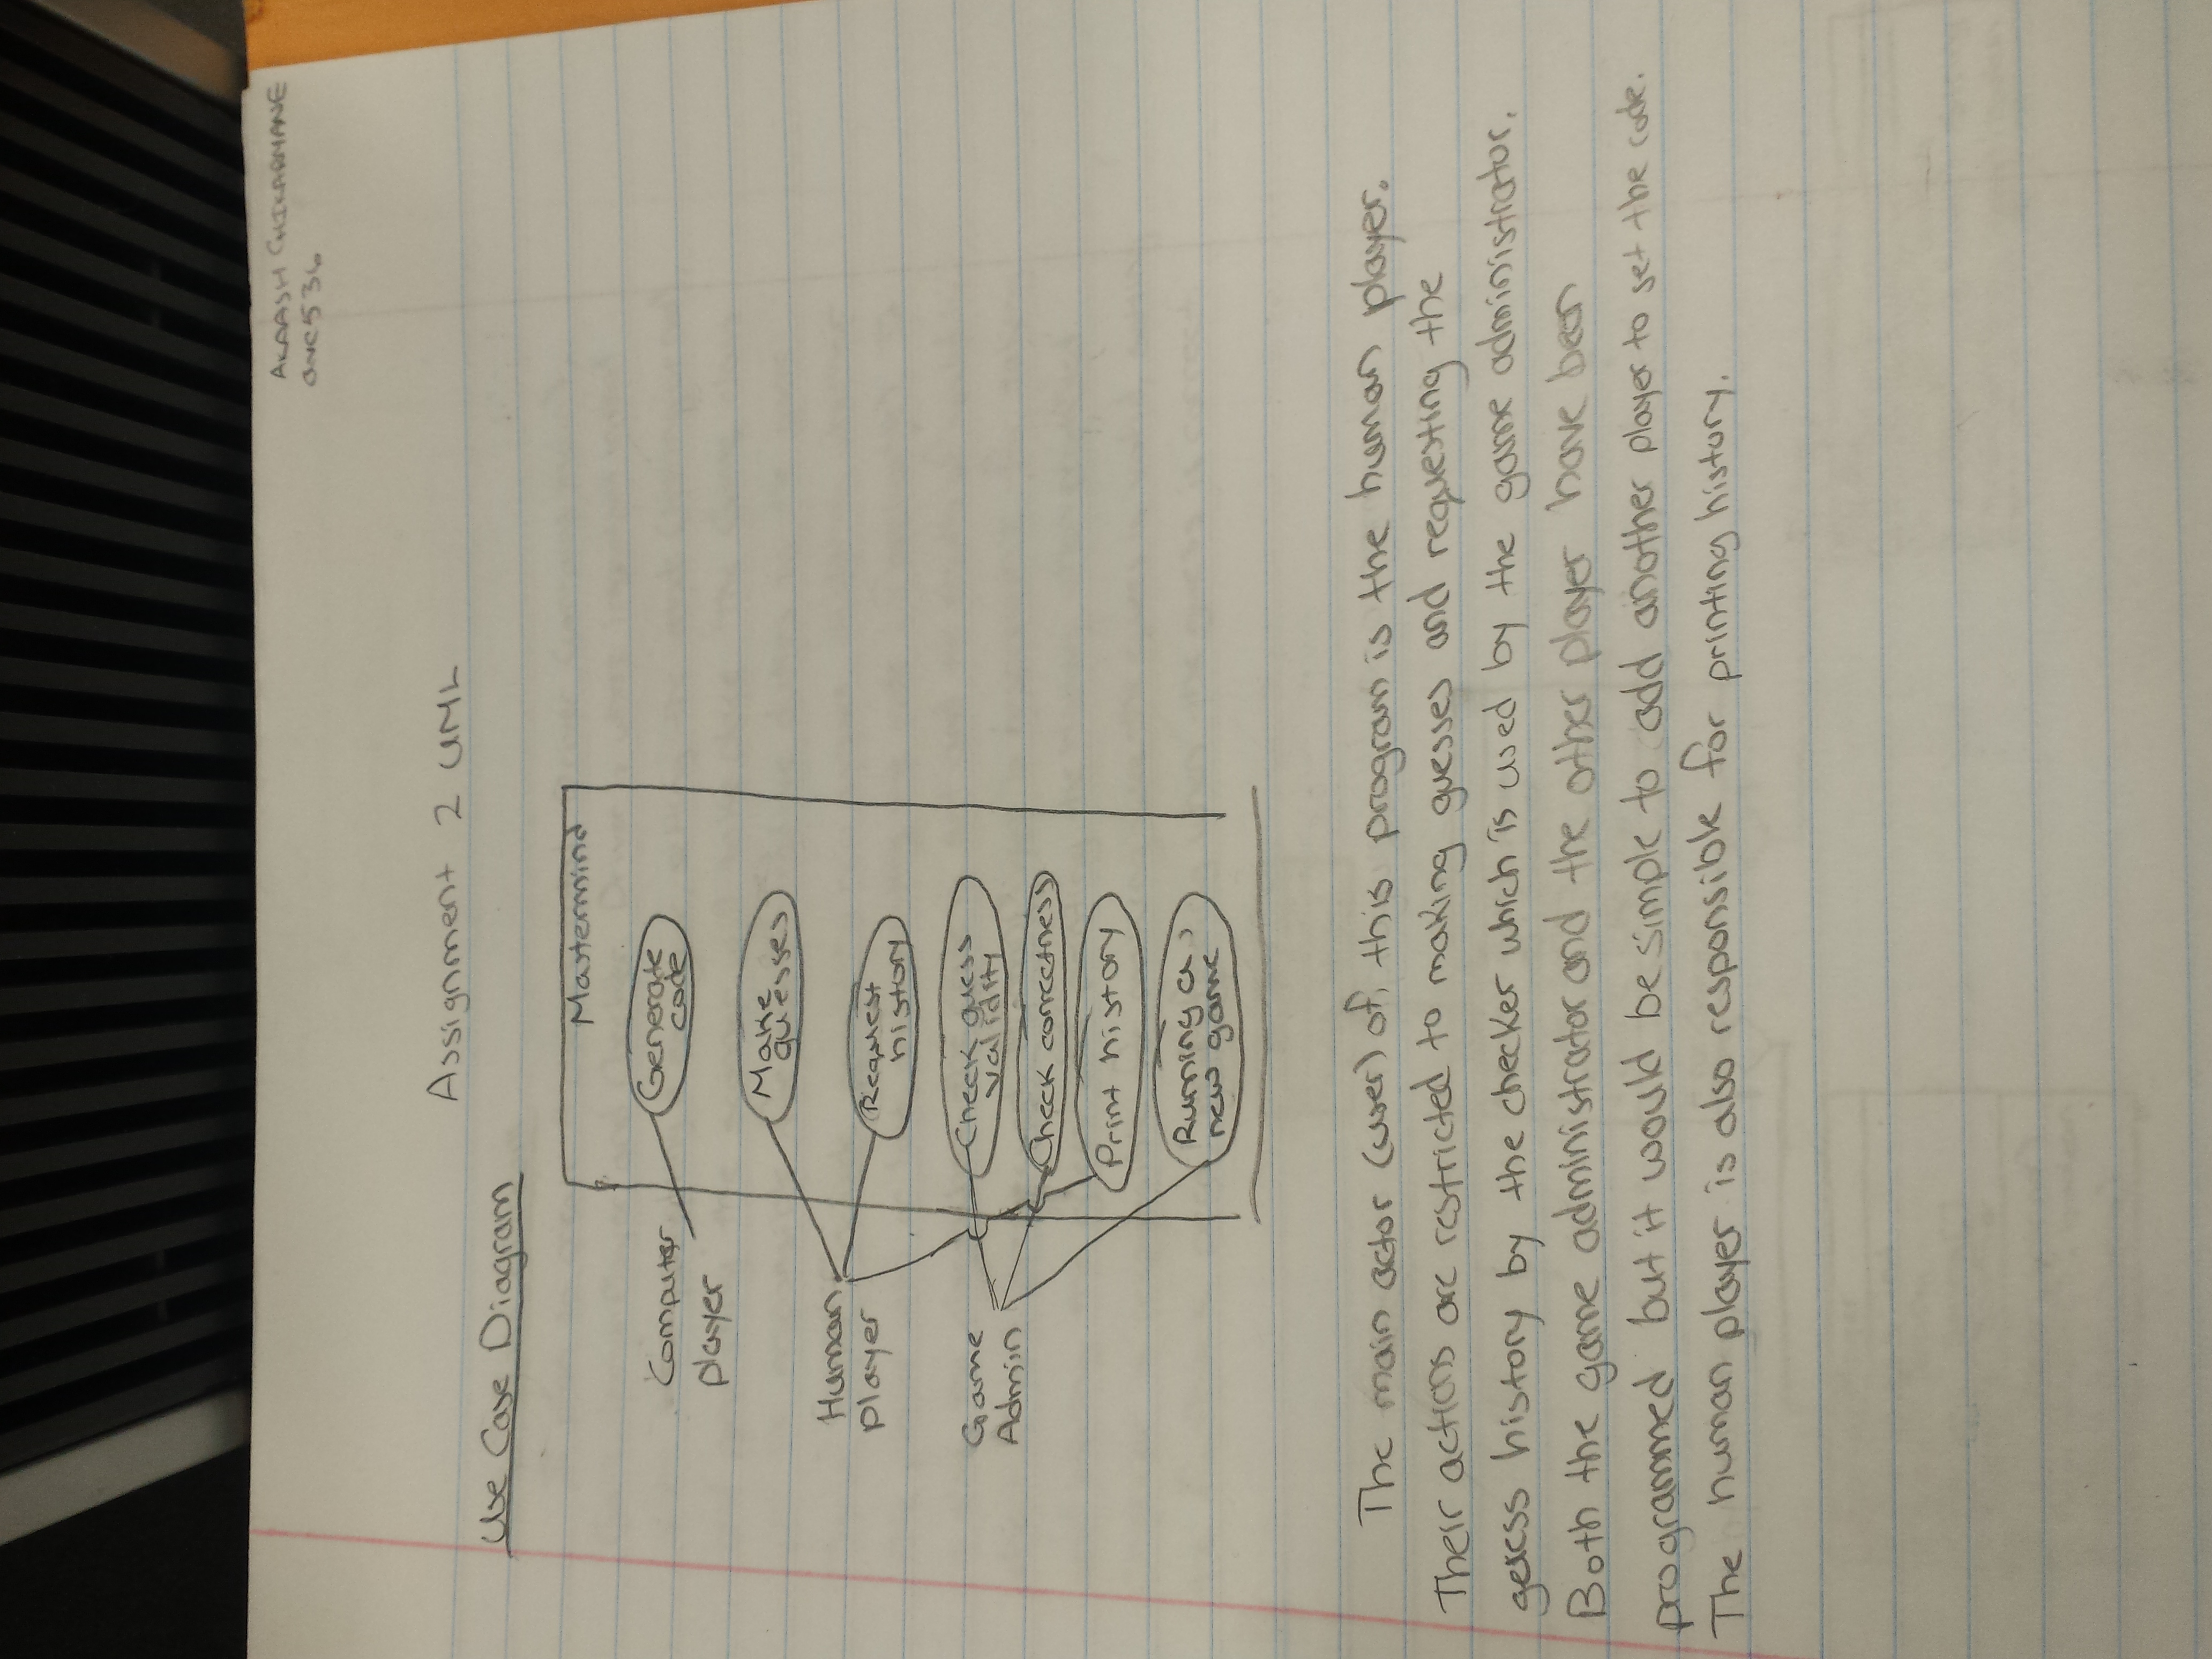 AKAASH CHIKARMANE
avc536
Assignment 2 UML
Use Case Diagram
Mastermind
Computer
player
Generate
code
Make
guesses
Human
player
Request
history
Game
Admin
Check guess
validity
Check correctness
Print history
Running a
new game
The main actor (user) of this program is the human player.
Their actions are restricted to making guesses and requesting the
guess history by the checker which is used by the game administrator.
Both the game administrator and the other player have been
programmed but it would be simple to add another player to set the code.
The human player is also responsible for printing history.